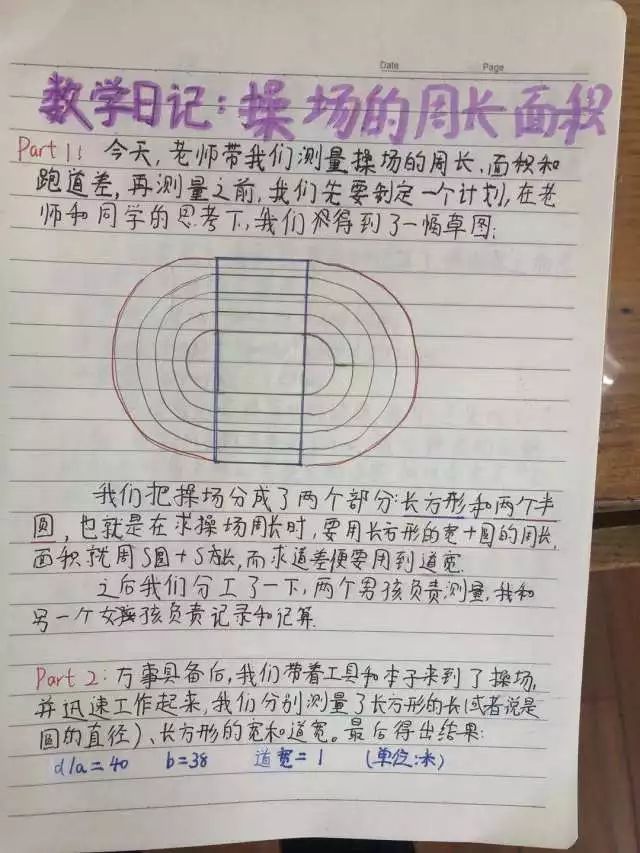 Date Page
数学日记：操场的周长面积
Part 1：今天，老师带我们测量操场的周长、面积和
跑道差，再测量之前，我们先要制定一个计划，在老
师和同学的思考下，我们得到了一幅草图：
我们把操场分成了两个部分：长方形和两个半
圆，也就是在求操场周长时，要用长方形的宽+圆的周长，
面积就用S圆+S方长，而求道差便要用到道宽.
之后我们分工了一下，两个男孩负责测量，我和
另一个女孩负责记录和记算.
Part 2：万事具备后，我们带着工具和本子来到了操场，
并迅速工作起来，我们分别测量了长方形的长（或者说是
圆的直径）、长方形的宽和道宽。最后得出结果：
d/a=40 b=38 道宽=1 （单位：米）